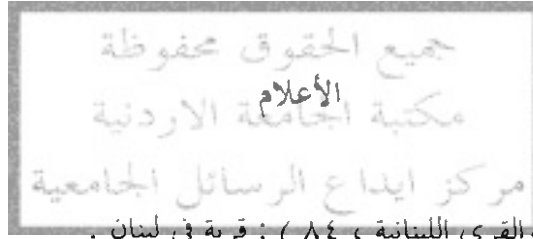 جميع الحقوق محفوظة
الأعلام
مكتبة الجامعة الاردنية
مركز ايداع الرسائل الجامعية
القرى اللبنانية ، ٨٤ ) : قرية في لبنان .